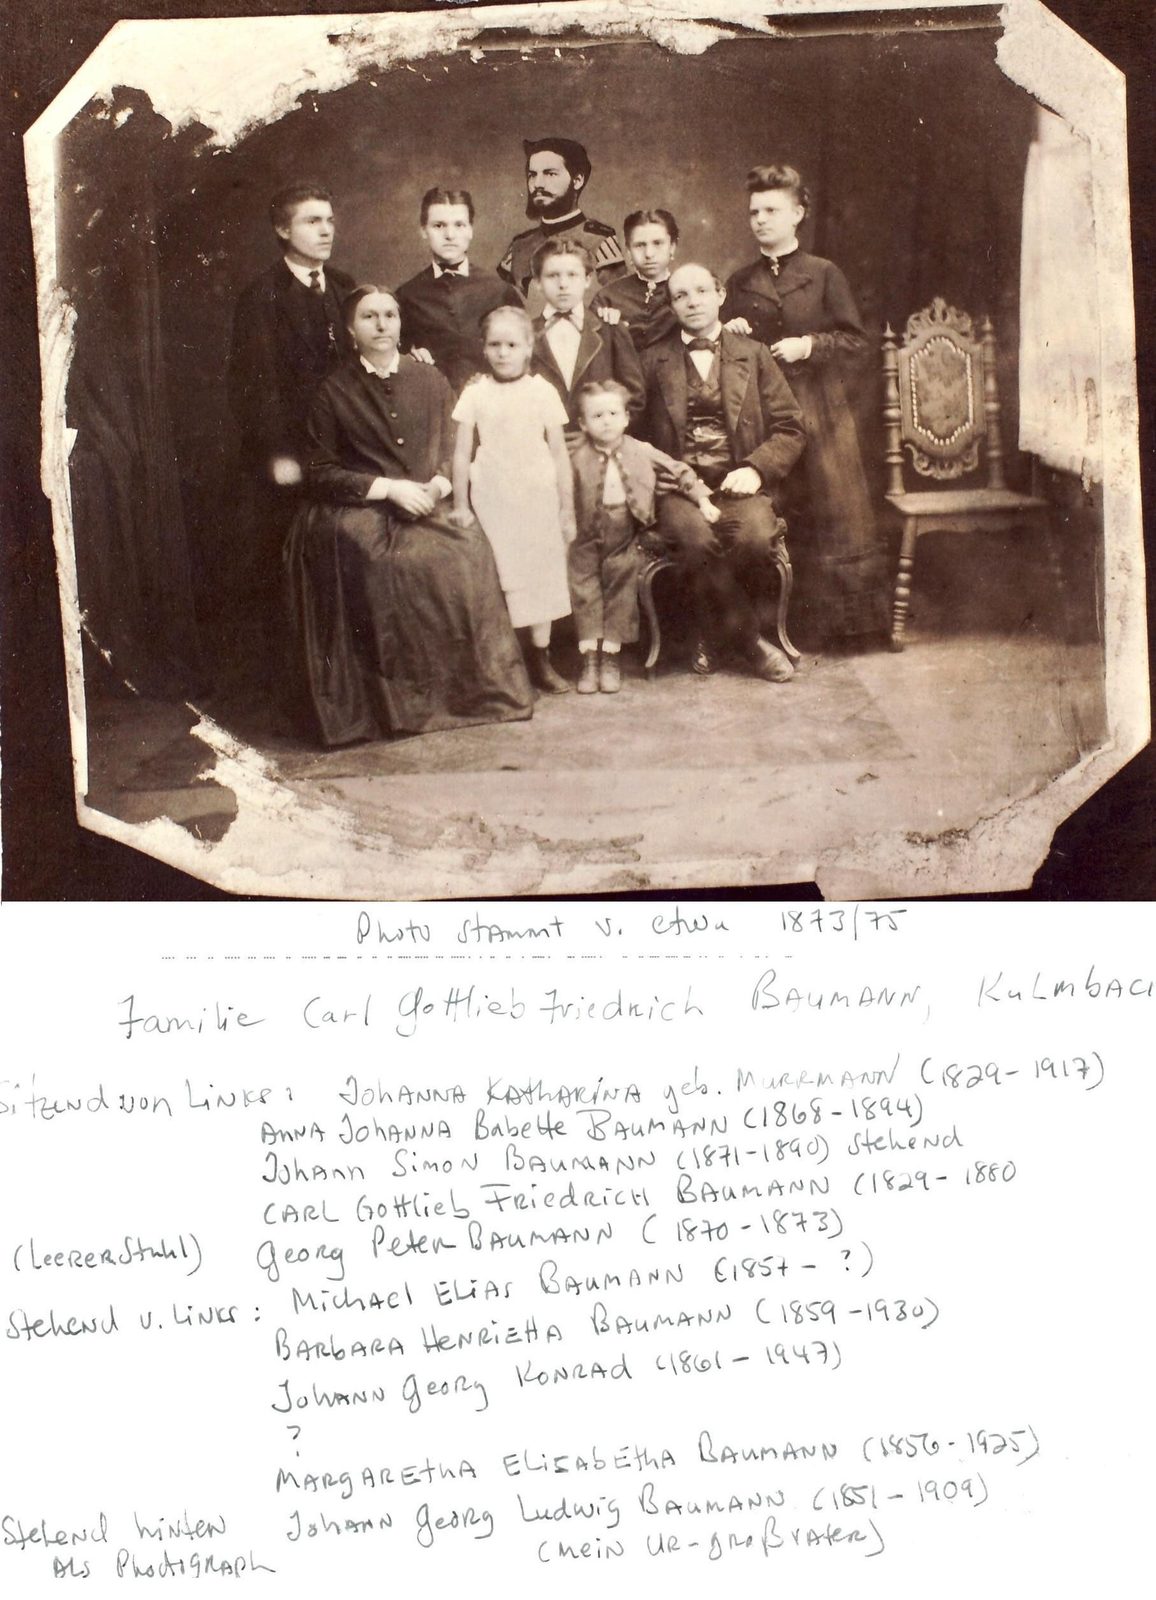 Photo stammt v. etwa 1873/75
Familie Carl Gottlieb Friedrich BAUMANN, KULMBACH
Sitzend von Links: JOHANNA KATHARINA geb. MURRMANN (1829-1917)
ANNA JOHANNA Babette BAUMANN (1868-1894)
Johann Simon BAUMANN (1871-1890) stehend
CARL Gottlieb FRIEDRICH BAUMANN (1829-1880
(LEERER Stuhl) Georg Peter BAUMANN (1870-1873)
Stehend v. Links: Michael ELIAS BAUMANN (1857-?)
BARBARA HENRIETTA BAUMANN (1859-1930)
Johann Georg KONRAD (1861-1947)
?
MARGARETHA ELISABETHA BAUMANN (1856-1925)
Stehend hinten Johann Georg Ludwig BAUMANN (1851-1909)
als Photograph (mein UR-großvater)